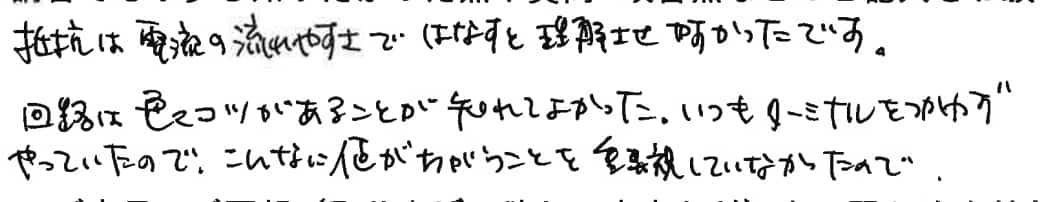 抵抗は電流の流れやすさではなすと理解させやすかったです。
回路は色々コツがあることが知れてよかった。いつもターミナルをつかわず
やっていたので、こんなに値がちがうことを重要視していなかったので、